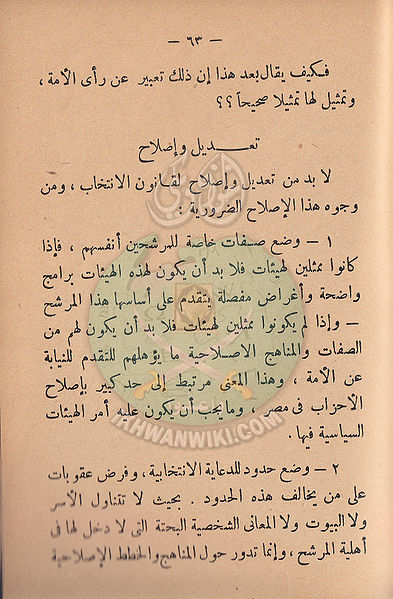 — ٦٣ —
فكيف يقال بعد هذا إن ذلك تعبير عن رأى الأمة ،
وتمثيل لها تمثيلا صحيحاً ؟؟
تعـديل وإصلاح
لا بد من تعديل وإصلاح لقانون الانتخاب ، ومن
وجوه هذا الإصلاح الضرورية :
١ — وضع صفات خاصة للمرشحين أنفسهم ، فإذا
كانوا ممثلين لهيئات فلا بد أن يكون لهذه الهيئات برامج
واضحة وأغراض مفصلة يتقدم على أساسها هذا المرشح
— وإذا لم يكونوا ممثلين لهيئات فلا بد أن يكون لهم من
الصفات والمناهج الاصلاحية ما يؤهلهم للتقدم للنيابة
عن الأمة ، وهذا المعنى مرتبط إلى حد كبير بإصلاح
الأحزاب فى مصر ، وما يجب أن يكون عليه أمر الهيئات
السياسية فيها .
IKHWANWIKI.COM
٢ — وضع حدود للدعاية الانتخابية ، وفرض عقوبات
على من يخالف هذه الحدود . بحيث لا تتناول الأسر
ولا البيوت ولا المعانى الشخصية البحتة التى لا دخل لها فى
أهلية المرشح ، وإنما تدور حول المناهج والخطط الإصلاحية